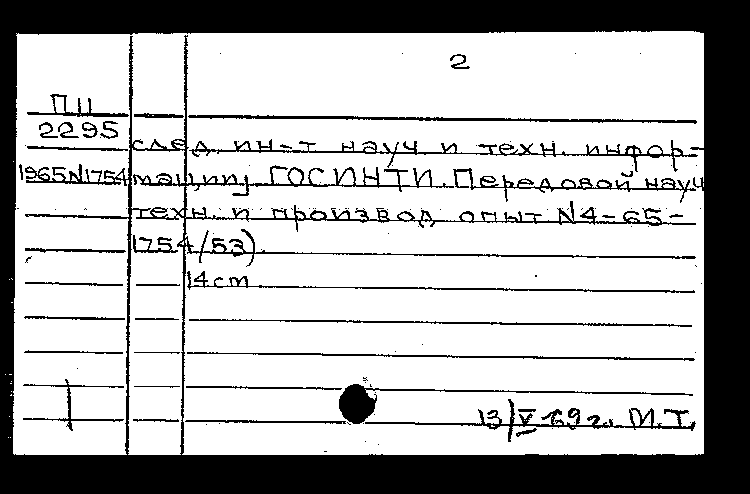 2
П 11
2295
след. ин-т науч и техн. инфор-
1965 N1754 мации) ГОСИНТИ. Передовой науч
техн. и производ опыт N4-65-
1754/53).
14 cm
13/V 69 г. М.Т.